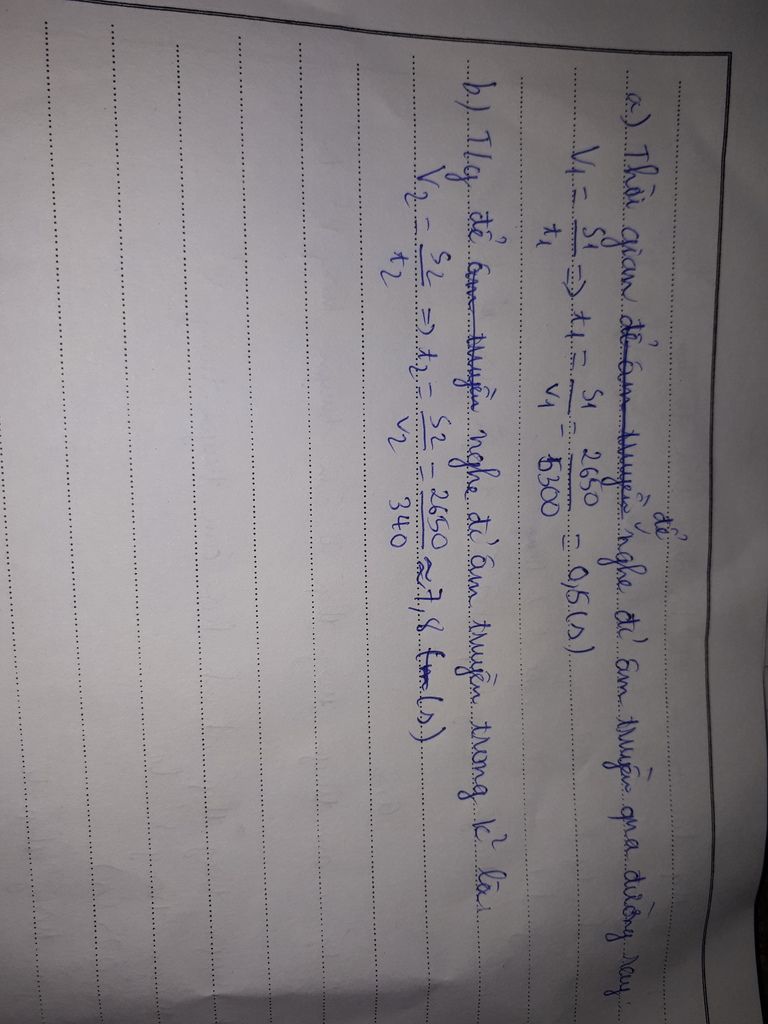 a) Thời gian để nghe đc âm truyền qua đường ray.
V1 = S1/t1 => t1 = S1/V1 = 2650/5300 = 0,5 (s)
b) T/g để nghe đc âm truyền trong k² là.
V2 = S2/t2 => t2 = S2/V2 = 2650/340 ≈ 7,8 (s)